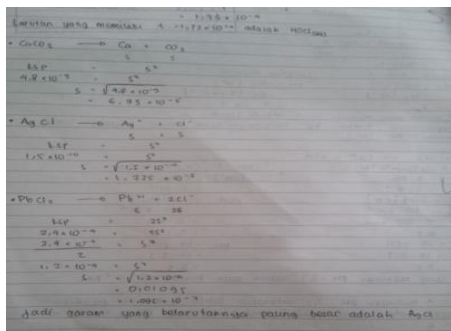 = 1,75 × 10⁻⁴
Larutan yang memiliki + -1,75 × 10⁻⁴ adalah HOCl
• CaCO₃ → Ca + CO₃
s s
ksp = s²
4,8 × 10⁻⁹ = s²
s = √4,8 × 10⁻⁹
= 6,93 × 10⁻⁵
• AgCl → Ag⁺ + Cl⁻
s + s
ksp = s²
1,5 × 10⁻¹⁰ = s²
s = √1,5 × 10⁻¹⁰
= 1,225 × 10⁻⁵
• PbCl₂ → Pb²⁺ + 2Cl⁻
s 2s
ksp = 2s²
2,4 × 10⁻⁴ = 2s²
2,4 × 10⁻⁴ = s²
2
1,2 × 10⁻⁴ = s²
s = √1,2 × 10⁻⁴
= 0,01095
= 1,095 × 10⁻²
Jadi garam yang kelarutannya paling besar adalah AgCl